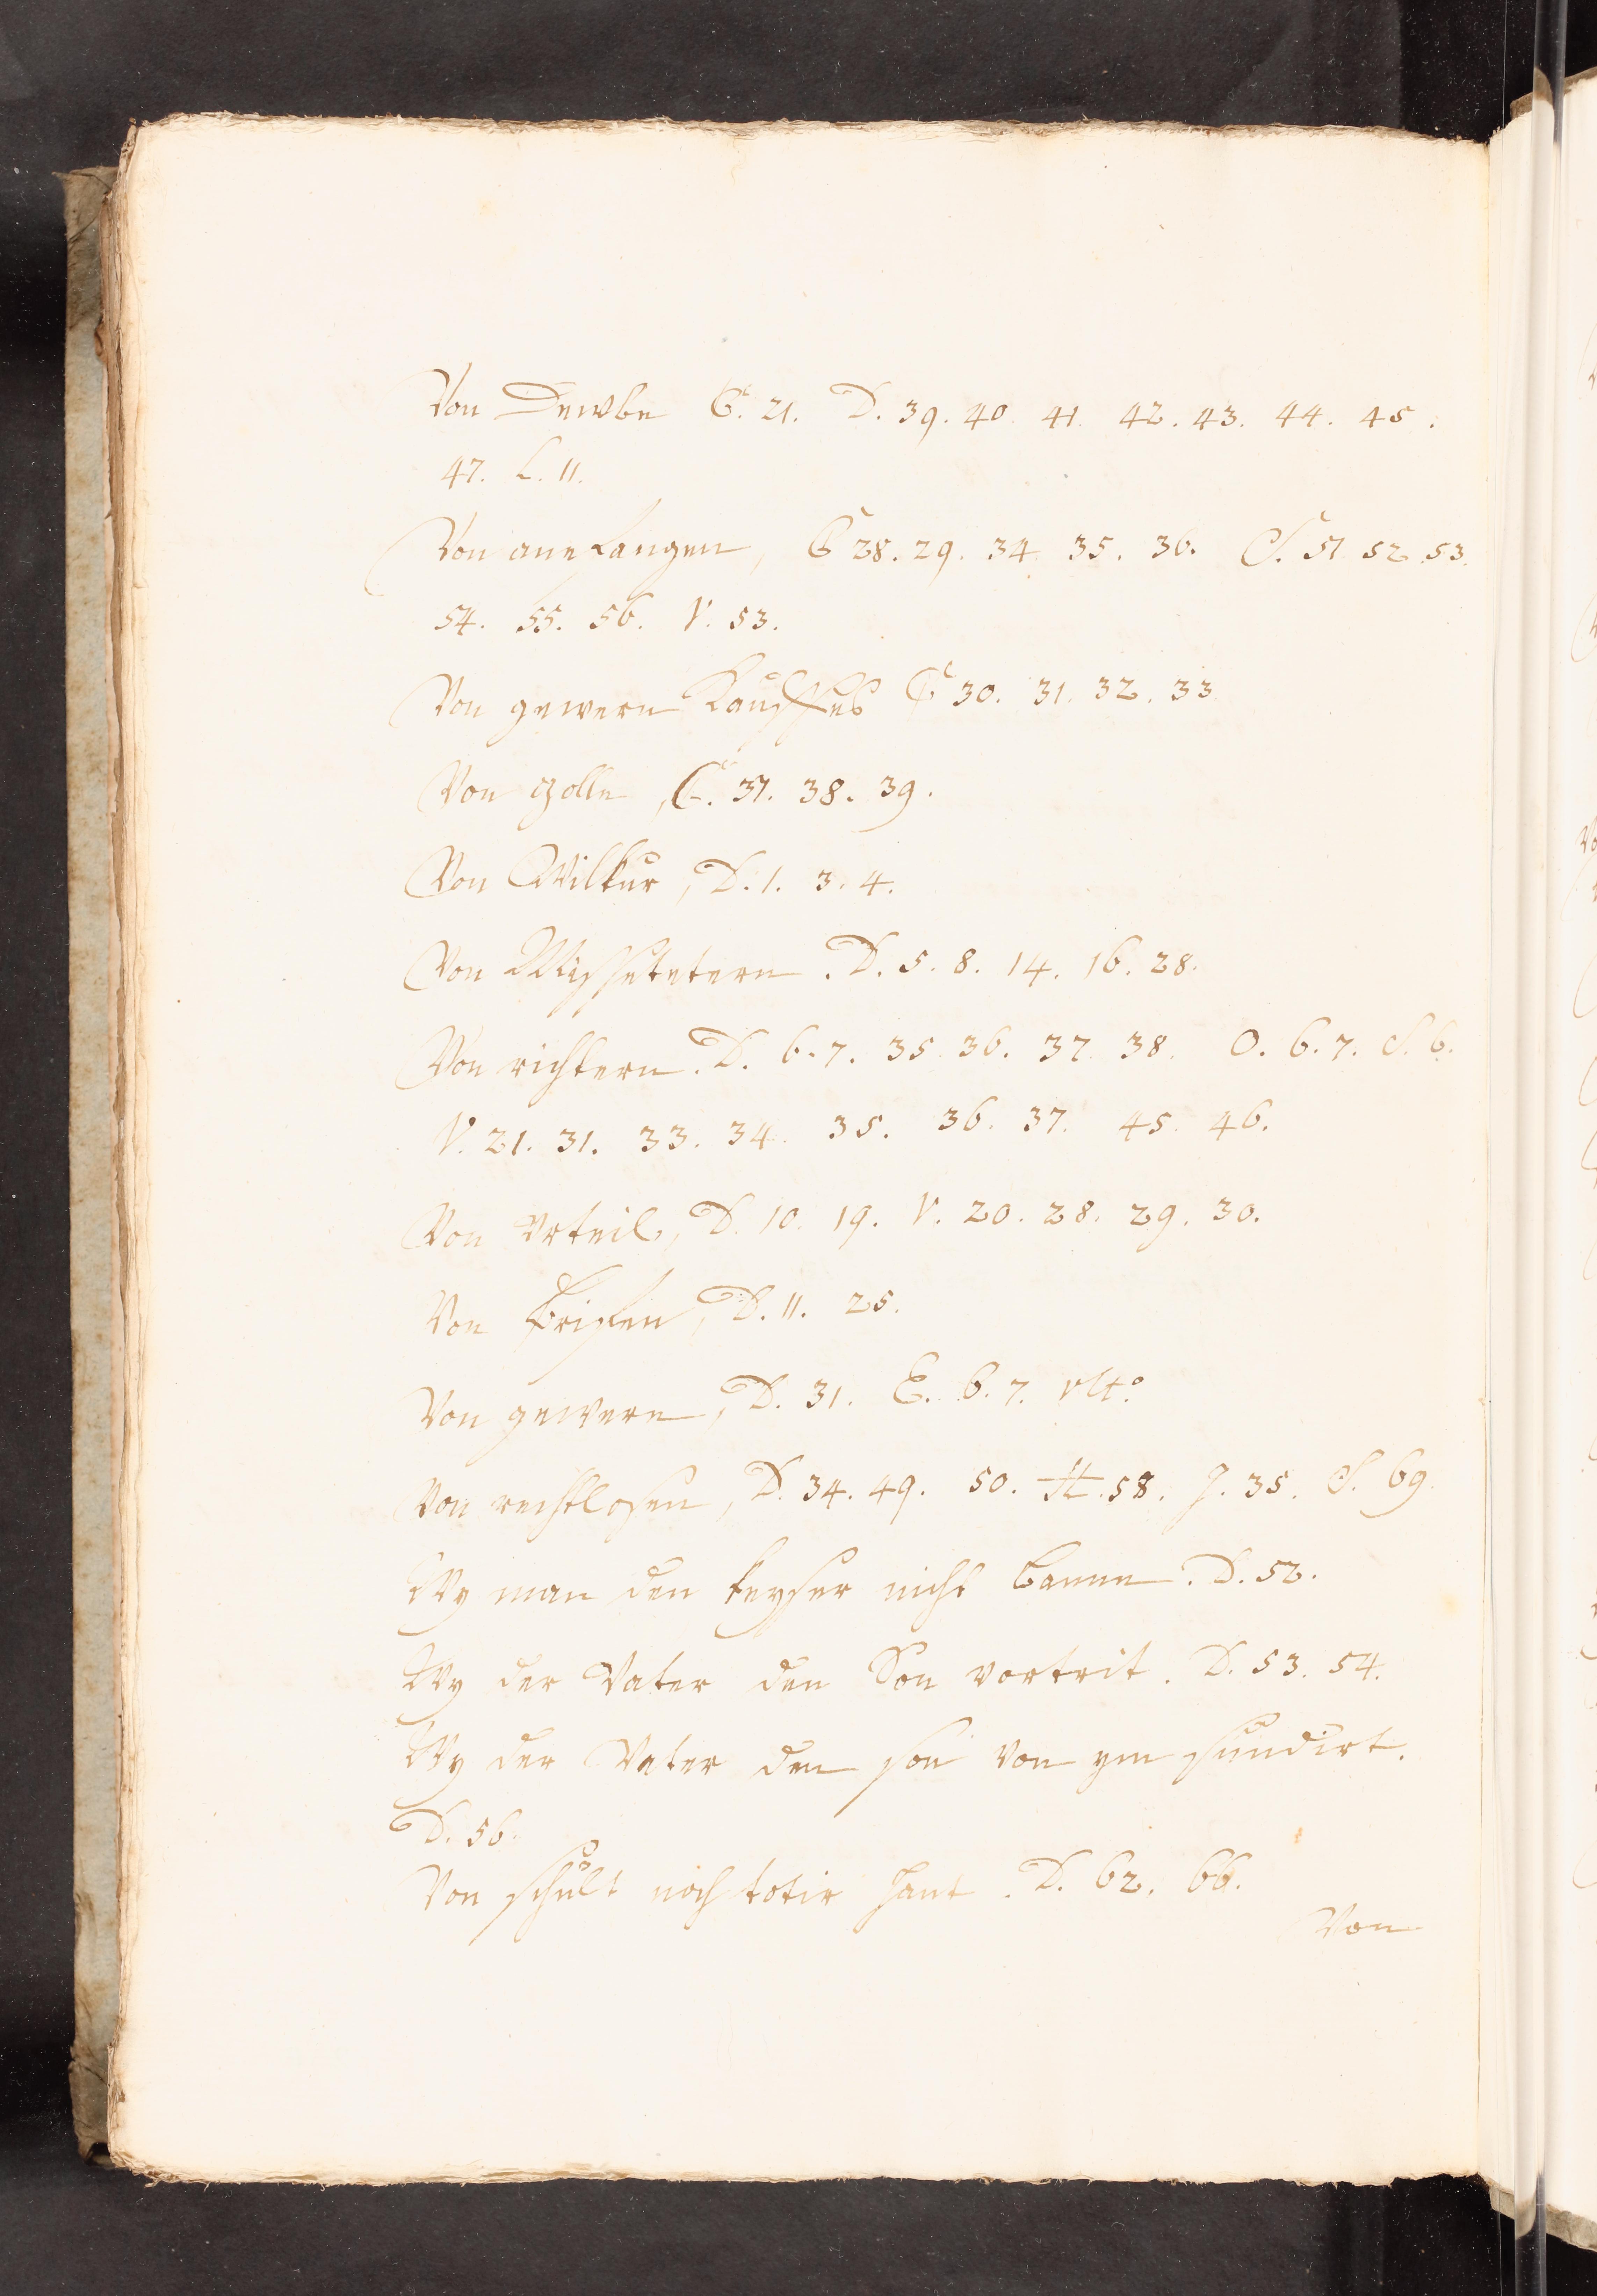 Von Dewbe C. 21. D. 39. 40. 41. 42. 43. 44. 45.
47. L. 11.
Von anelangen, C 28. 29. 34. 35. 36. S. 51. 52. 53.
54. 55. 56. V. 53.
Von gewern Kauffes C 30. 31. 32. 33
Von czolle, C. 37. 38. 39.
Von Wilkur, D. 1. 3. 4.
Von Missetetern. D. 5. 8. 14. 16. 28.
Von richtern. D. 6. 7. 35. 36. 37. 38. O. 6. 7. S. 6.
V. 21. 31. 33. 34. 35. 36. 37. 45. 46.
Von vrteil, D. 10. 19. V. 20. 28. 29. 30.
Von, D. 11. 25.
Von gewere, D. 31. E. 6. 7. vlt°
Von rechtlosen, D. 34. 49. 50. H. 58. J. 35. S. 69.
Wy man den keyser nicht banne. D. 52.
Wy der Vater den Son vortrit. D. 53. 54.
Wy der Vater den son von ym sundirt.
D. 56.
Von schult noch totir hant. D. 62. 66.
Von